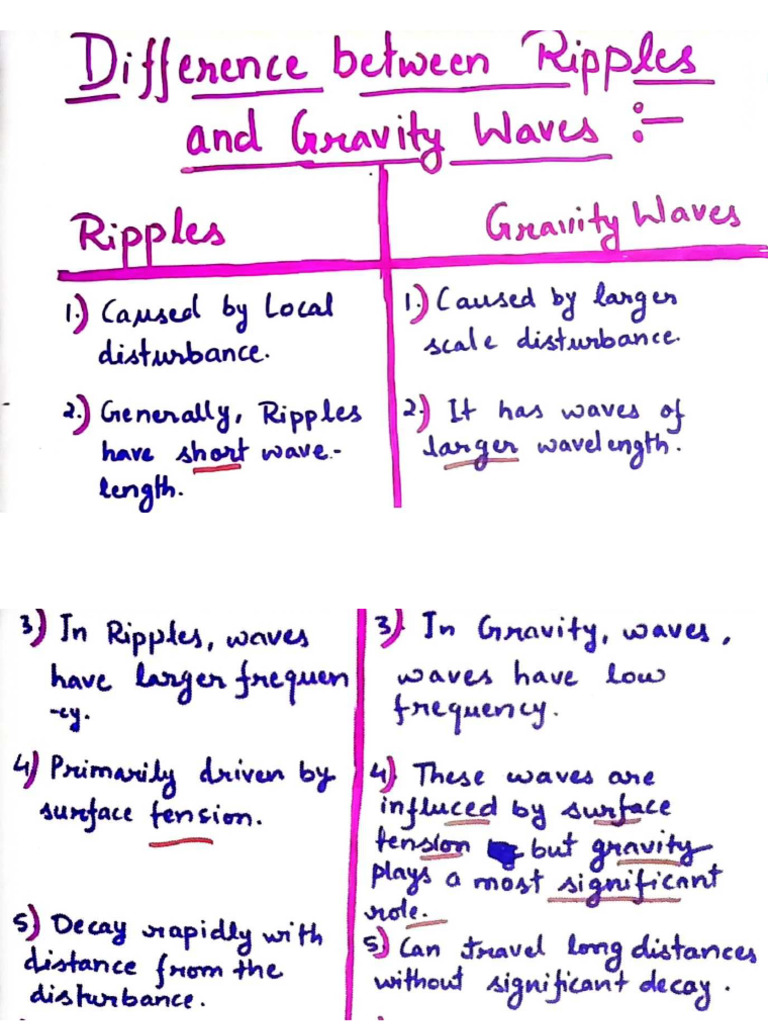 Difference between Ripples
and Gravity Waves :-
Ripples
Gravity Waves
1.) Caused by Local
disturbance.
2.) Generally, Ripples
have short wave-
length.
1.) Caused by larger
scale disturbance.
2.) It has waves of
larger wavelength.
3) In Ripples, waves
have larger frequen
-cy.
4) Primarily driven by
surface tension.
5) Decay rapidly with
distance from the
disturbance.
3) In Gravity, waves,
waves have low
frequency.
4) These waves are
influced by surface
tension but gravity
plays a most significant
role.
5) Can travel long distances
without significant decay.